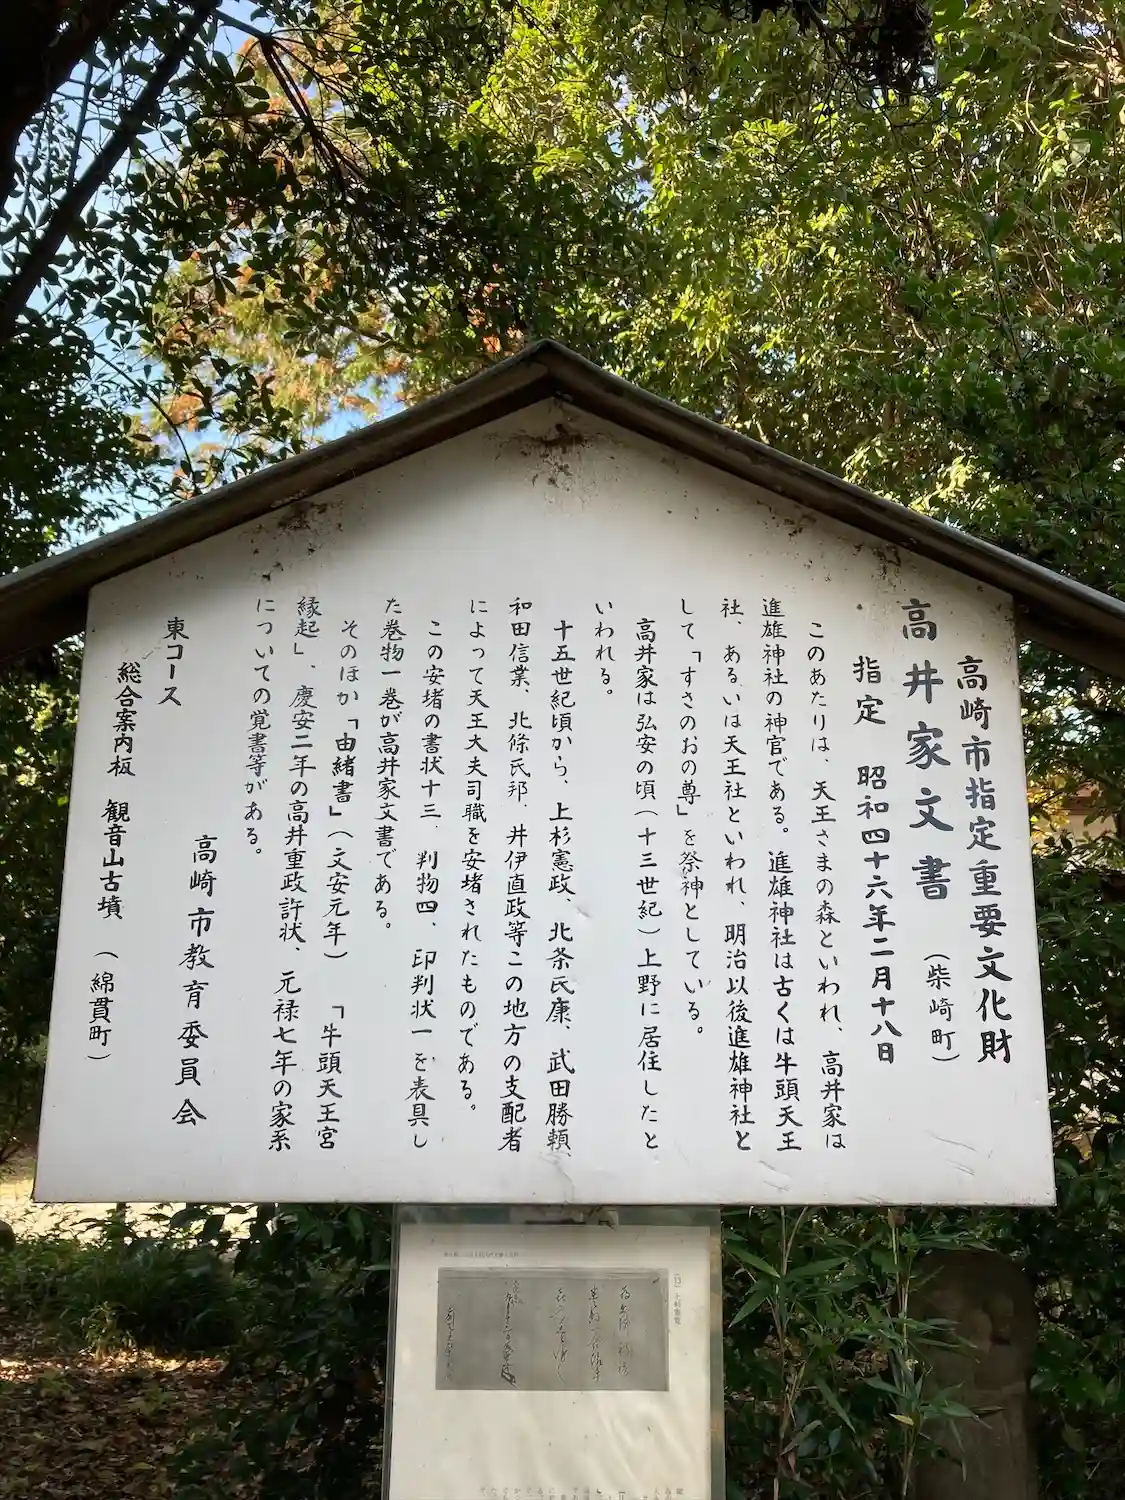 高崎市指定重要文化財
高井家文書 （柴崎町）
指定 昭和四十六年二月十八日
このあたりは、天王さまの森といわれ、高井家は
進雄神社の神官である。進雄神社は古くは牛頭天王
社、あるいは天王社といわれ、明治以後進雄神社と
して「すさのおの尊」を祭神としている。
高井家は弘安の頃（十三世紀）上野に居住したと
いわれる。
十五世紀頃から、上杉憲政、北条氏康、武田勝頼、
和田信業、北條氏邦、井伊直政等この地方の支配者
によって天王大夫司職を安堵されたものである。
この安堵の書状十三、判物四、印判状一を表具し
た巻物一巻が高井家文書である。
そのほか「由緒書」（文安元年）「牛頭天王宮
縁起」、慶安二年の高井重政許状、元禄七年の家系
についての覚書等がある。
高崎市教育委員会
東コース
総合案内板 観音山古墳 （綿貫町）